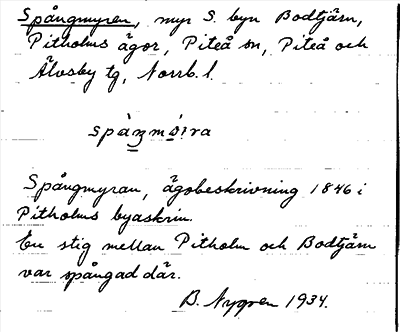 Spångmyren, myr S. byn Bodtjärn,
Pitholms ägor, Piteå sn, Piteå och
Älvsby tg, Norrb. l.
Spångmyran, ägobeskrivning 1846 i
Pitholms byaskrin.
En stig mellan Pitholm och Bodtjärn
var spångad där.
B. Nygren 1934.